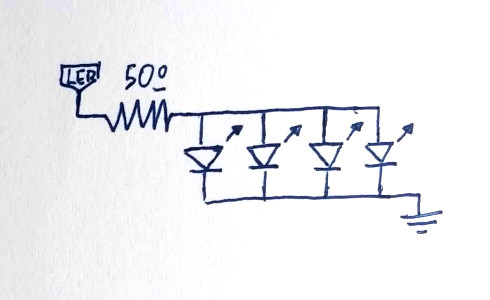 LED
50º